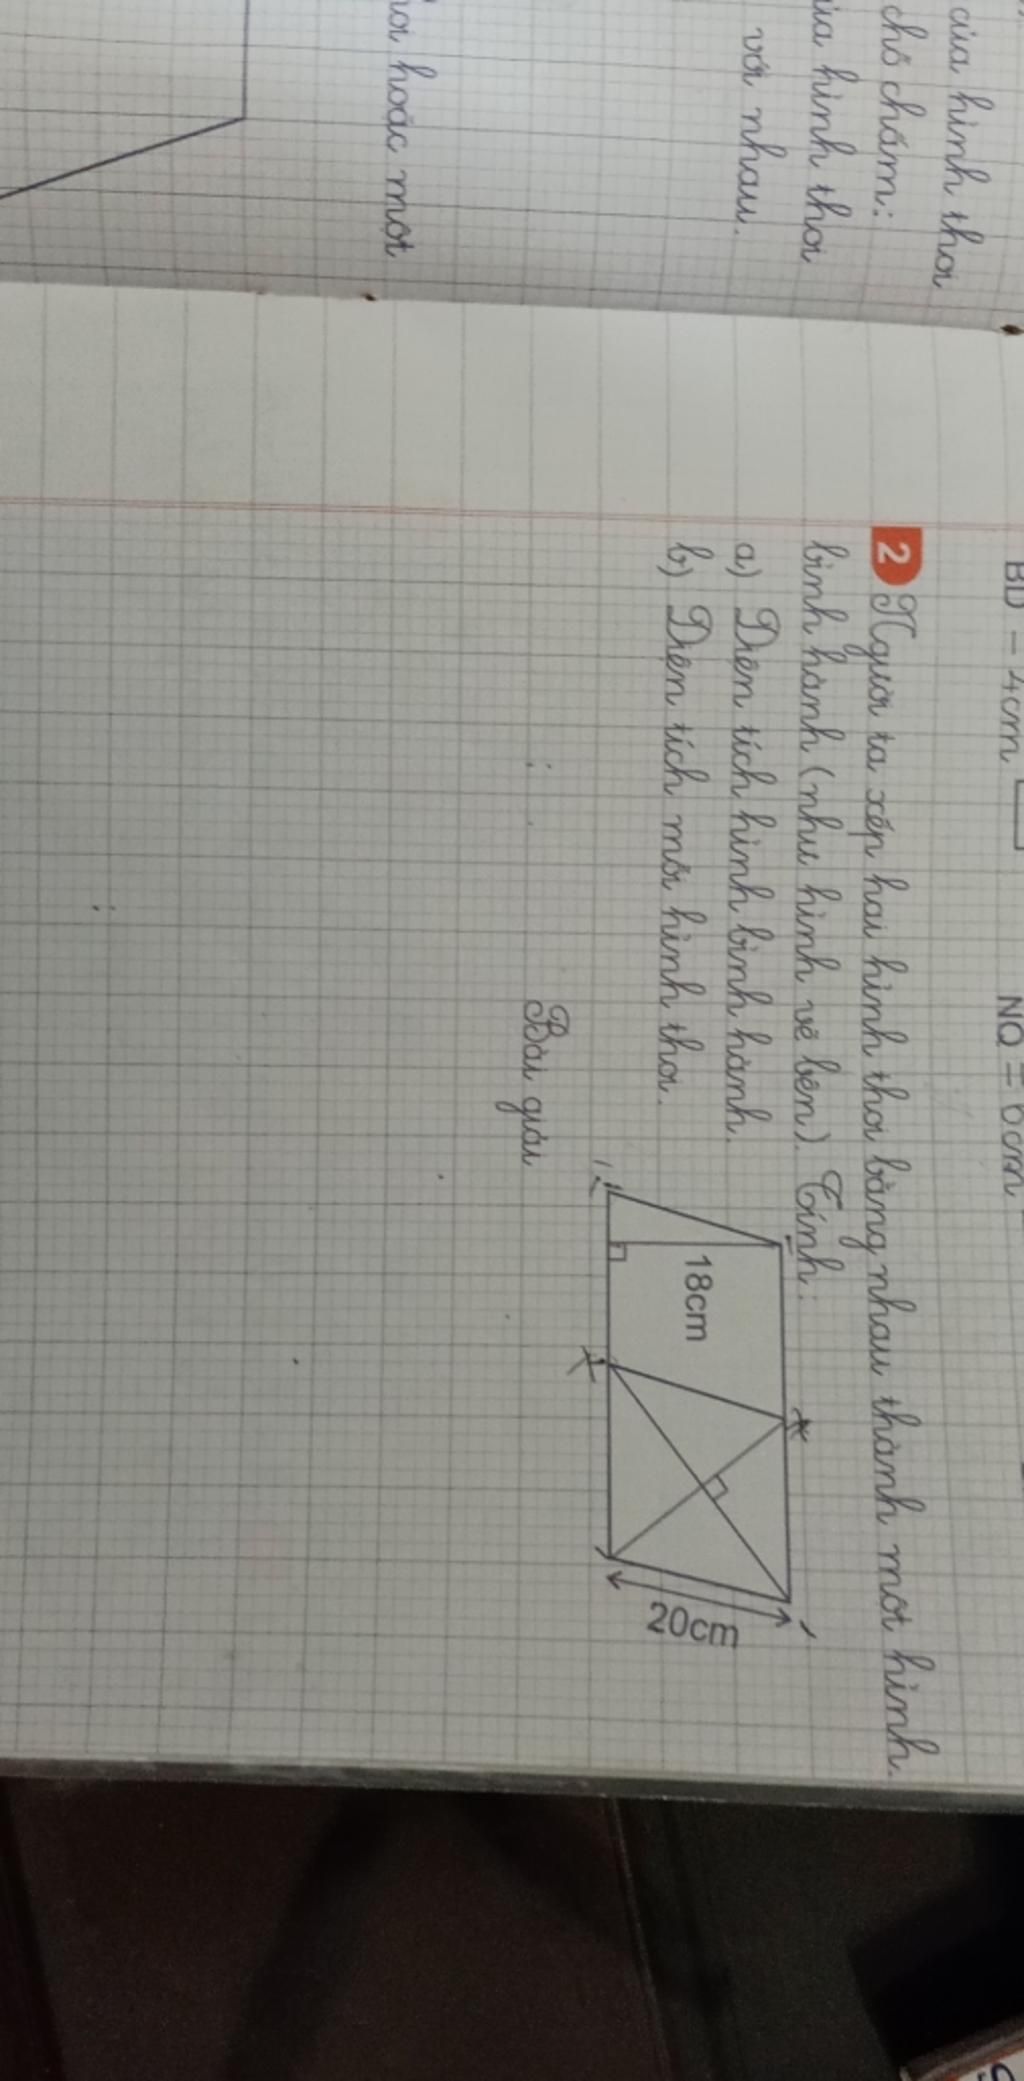 của hình thoi
chỗ chấm:
của hình thoi
với nhau.
hoặc một
BD = 4cm
NQ = 6cm
2 Người ta xếp hai hình thoi bằng nhau thành một hình
bình hành (như hình vẽ bên). Tính:
a) Diện tích hình bình hành.
b) Diện tích mỗi hình thoi.
18cm
20cm
Bài giải